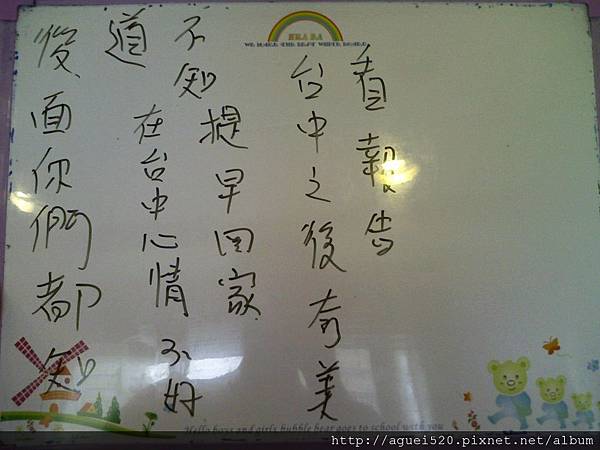 WE MAKE THE BEST WHITE BOARD
看報告
台中之後奇美
提早回家
不知
在台中心情不好
道
後面你們都知
Hello boys and girls bubble bear goes to school with you
http://aguei520.pixnet.net/album